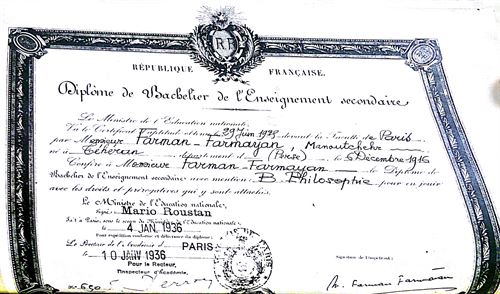 R F
RÉPUBLIQUE FRANÇAISE.
Diplôme de Bachelier de l'Enseignement secondaire
Le Ministre de l'Education nationale,
Vu le Certificat d'aptitude obtenu le 29 Juin 1935 devant la Faculté de Paris
par Monsieur Farman-Farmayan, Manoutchehr
né à Téhéran département d (Perse) le 5 Décembre 1916
Confère à Monsieur Farman-Farmayan le Diplôme de
Bachelier de l'Enseignement secondaire, avec mention B. Philosophie pour en jouir
avec les droits et prérogatives qui y sont attachés.
Le Ministre de l'Education nationale,
Signé: Mario Roustan
Fait à Paris, sous le sceau du Ministère de l'Education nationale,
le 4 JAN. 1936
Pour expédition conforme et délivrance du diplôme:
Le Recteur de l'Académie d PARIS
le 10 JANV 1936
Pour le Recteur,
l'Inspecteur d'Académie,
Signature de l'impétrant:
M. Farman Farmaian
N° 650